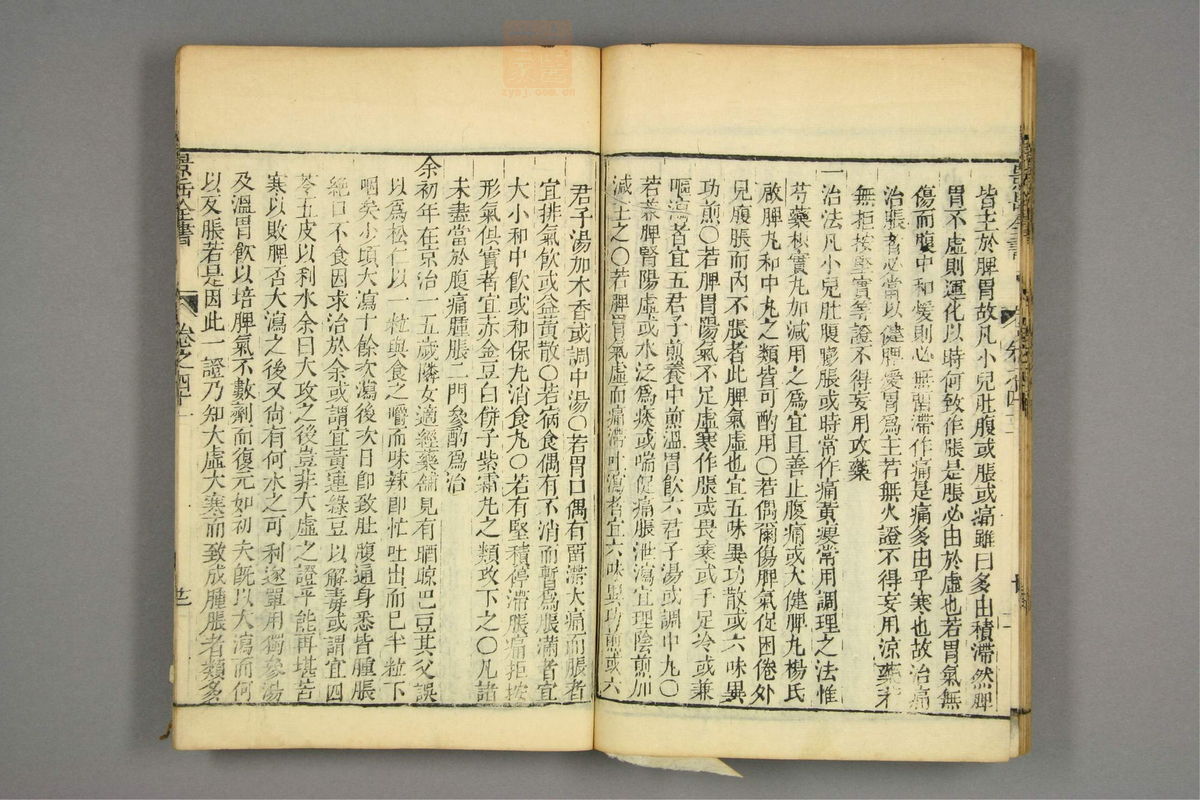 皆主於脾胃故凡小兒肚腹或脹或痛雖曰多由積滯然脾
胃不虛則運化以時何致作脹是脹必由於虛也若胃氣無
傷而腹中和煖則必無留滯作痛是痛多由乎寒也故治痛
治脹者必當以健脾煖胃爲主若無火證不得妄用凉藥若
無拒按堅實等證不得妄用攻藥
一治法凡小兒肚腹膨脹或時常作痛黃瘦常用調理之法惟
芍藥枳實丸加減用之爲宜且善止腹痛或大健脾丸楊氏
啟脾丸和中丸之類皆可酌用○若偶爾傷脾氣促困倦外
見腹脹而內不脹者此脾氣虛也宜五味異功散或六味異
功煎○若脾胃陽氣不足虛寒作脹或畏寒或手足冷或兼
嘔瀉者宜五君子煎養中煎溫胃飲六君子湯或調中丸○
若兼脾腎陽虛或水泛爲痰或喘促痛脹泄瀉宜理陰煎加
減主之○若脾胃氣虛而痛滯吐瀉者宜六味異功煎或六
君子湯加木香或調中湯○若胃口偶有留滯大痛而脹者
宜排氣飲或益黃散○若病食偶有不消而暫爲脹滿者宜
大小和中飲或和保丸消食丸○若有堅積停滯脹痛拒按
形氣俱實者宜赤金豆白餅子紫霜丸之類攻下之○凡諸
未盡當於腹痛腫脹二門參酌爲治
余初年在京治一五歲隣女適經藥鋪見有晒晾巴豆其父誤
以爲松仁以一粒與食之嚼而味辣即忙吐出而已半粒下
咽矣少頃大瀉十餘次瀉後次日即致肚腹通身悉皆腫脹
絕口不食因求治於余或謂宜黃連綠豆以解毒或謂宜四
苓五皮以利水余曰大攻之後豈非大虛之證乎能再堪苦
寒以敗脾否大瀉之後又尙有何水之可利遂單用獨參湯
及溫胃飲以培脾氣不數劑而復元如初夫旣以大瀉而何
以反脹若是因此一證乃知大虛大寒而致成腫脹者類多
景岳全書
卷之四十一
zysj.com.cn